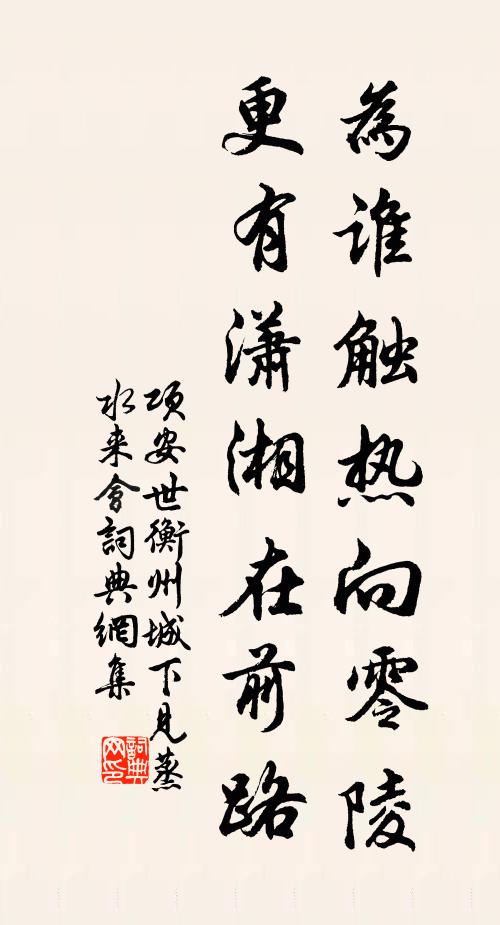 為谁触热向零陵
更有瀟湘在前路
项安世衡州城下見蒸
水来會詞典網集
詞典网印